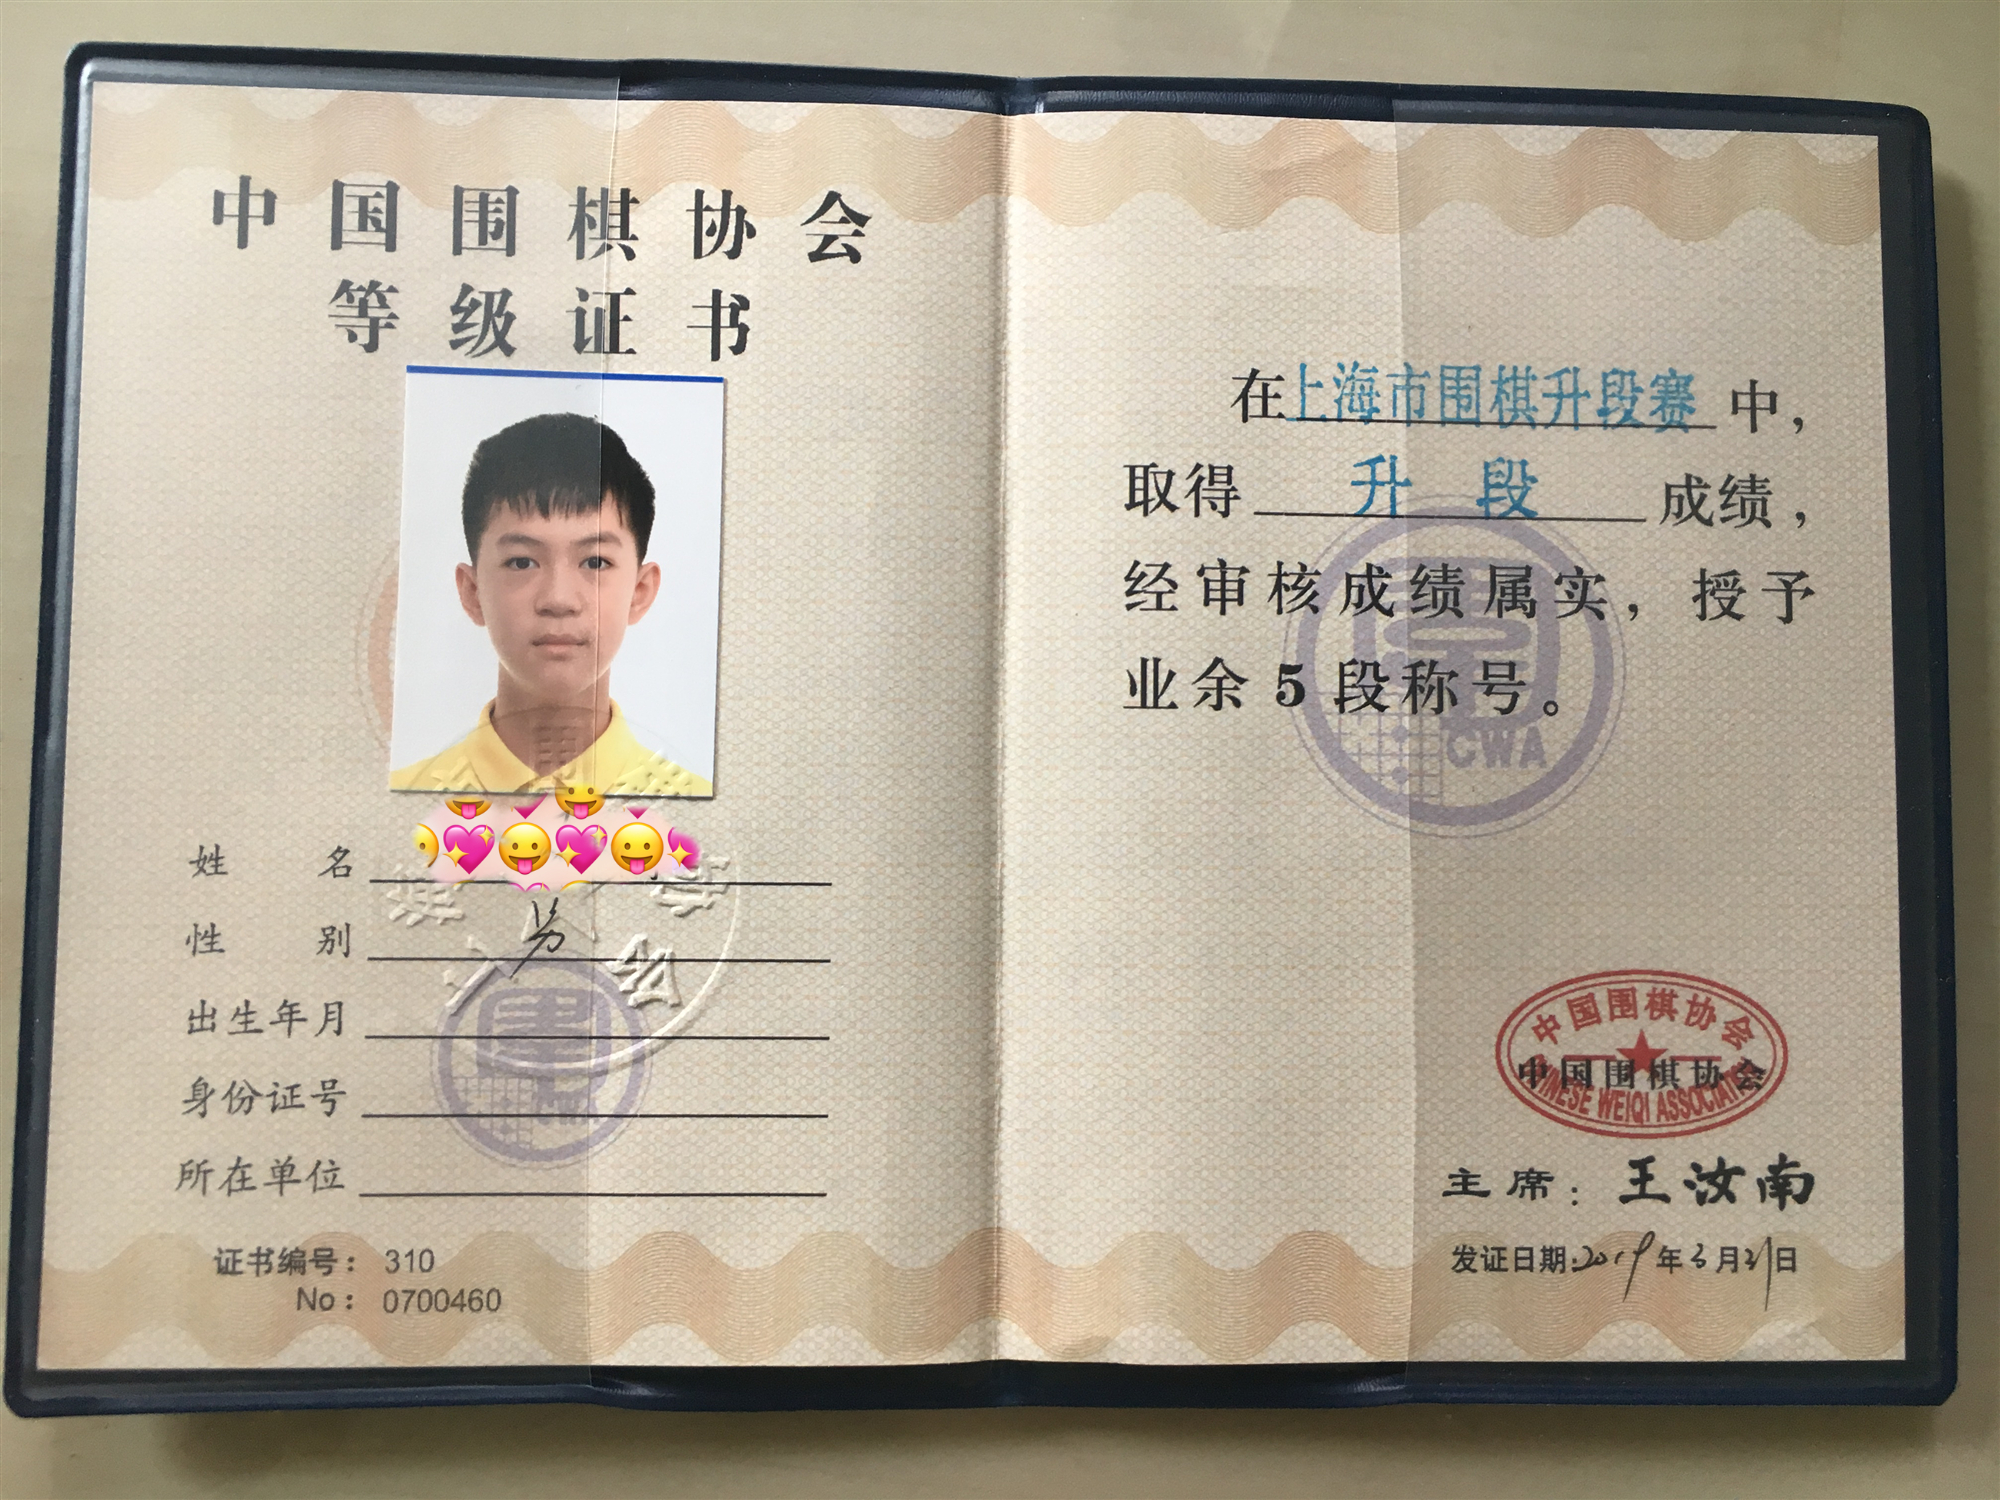 中国围棋协会
等级证书
姓名
性别 男
出生年月
身份证号
所在单位
证书编号： 310
No： 0700460
在上海市围棋升段赛中，
取得升段成绩，
经审核成绩属实，授予
业余5段称号。
CWA
中国围棋协会
中国围棋协会
CHINESE WEIQI ASSOCIATION
主席：王汝南
发证日期：2019年3月21日